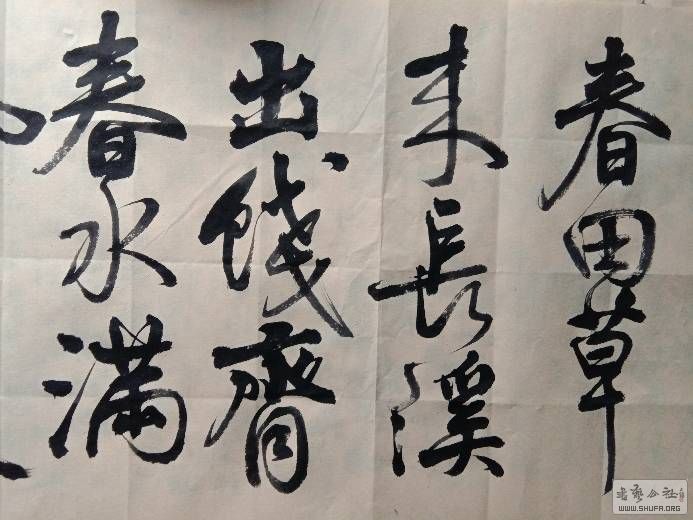 春田草
未長溪
出餞齊
春水滿
书艺公社
WWW.SHUFA.ORG